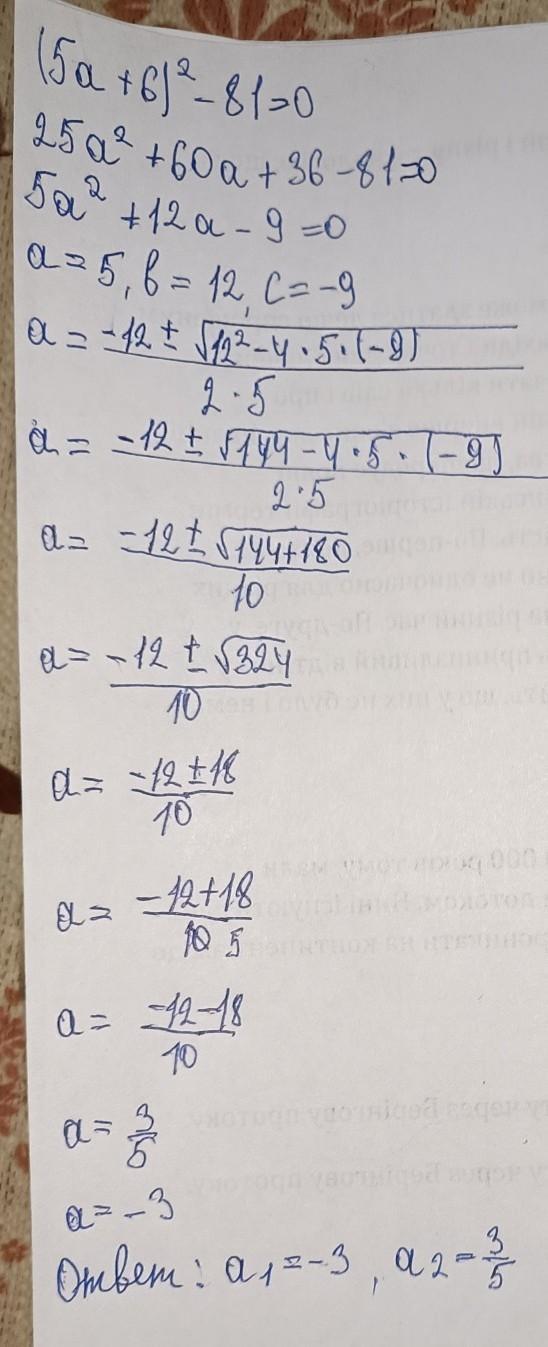 (5a + 6)² - 81 = 0
25a² + 60a + 36 - 81 = 0
5a² + 12a - 9 = 0
a = 5, b = 12, c = -9
a = (-12 ± √(12² - 4 · 5 · (-9))) / (2 · 5)
a = (-12 ± √(144 - 4 · 5 · (-9))) / (2 · 5)
a = (-12 ± √(144 + 180)) / 10
a = (-12 ± √324) / 10
a = (-12 ± 18) / 10
a = (-12 + 18) / 10 5
a = (-12 - 18) / 10
a = 3/5
a = -3
Ответ: a₁ = -3, a₂ = 3/5